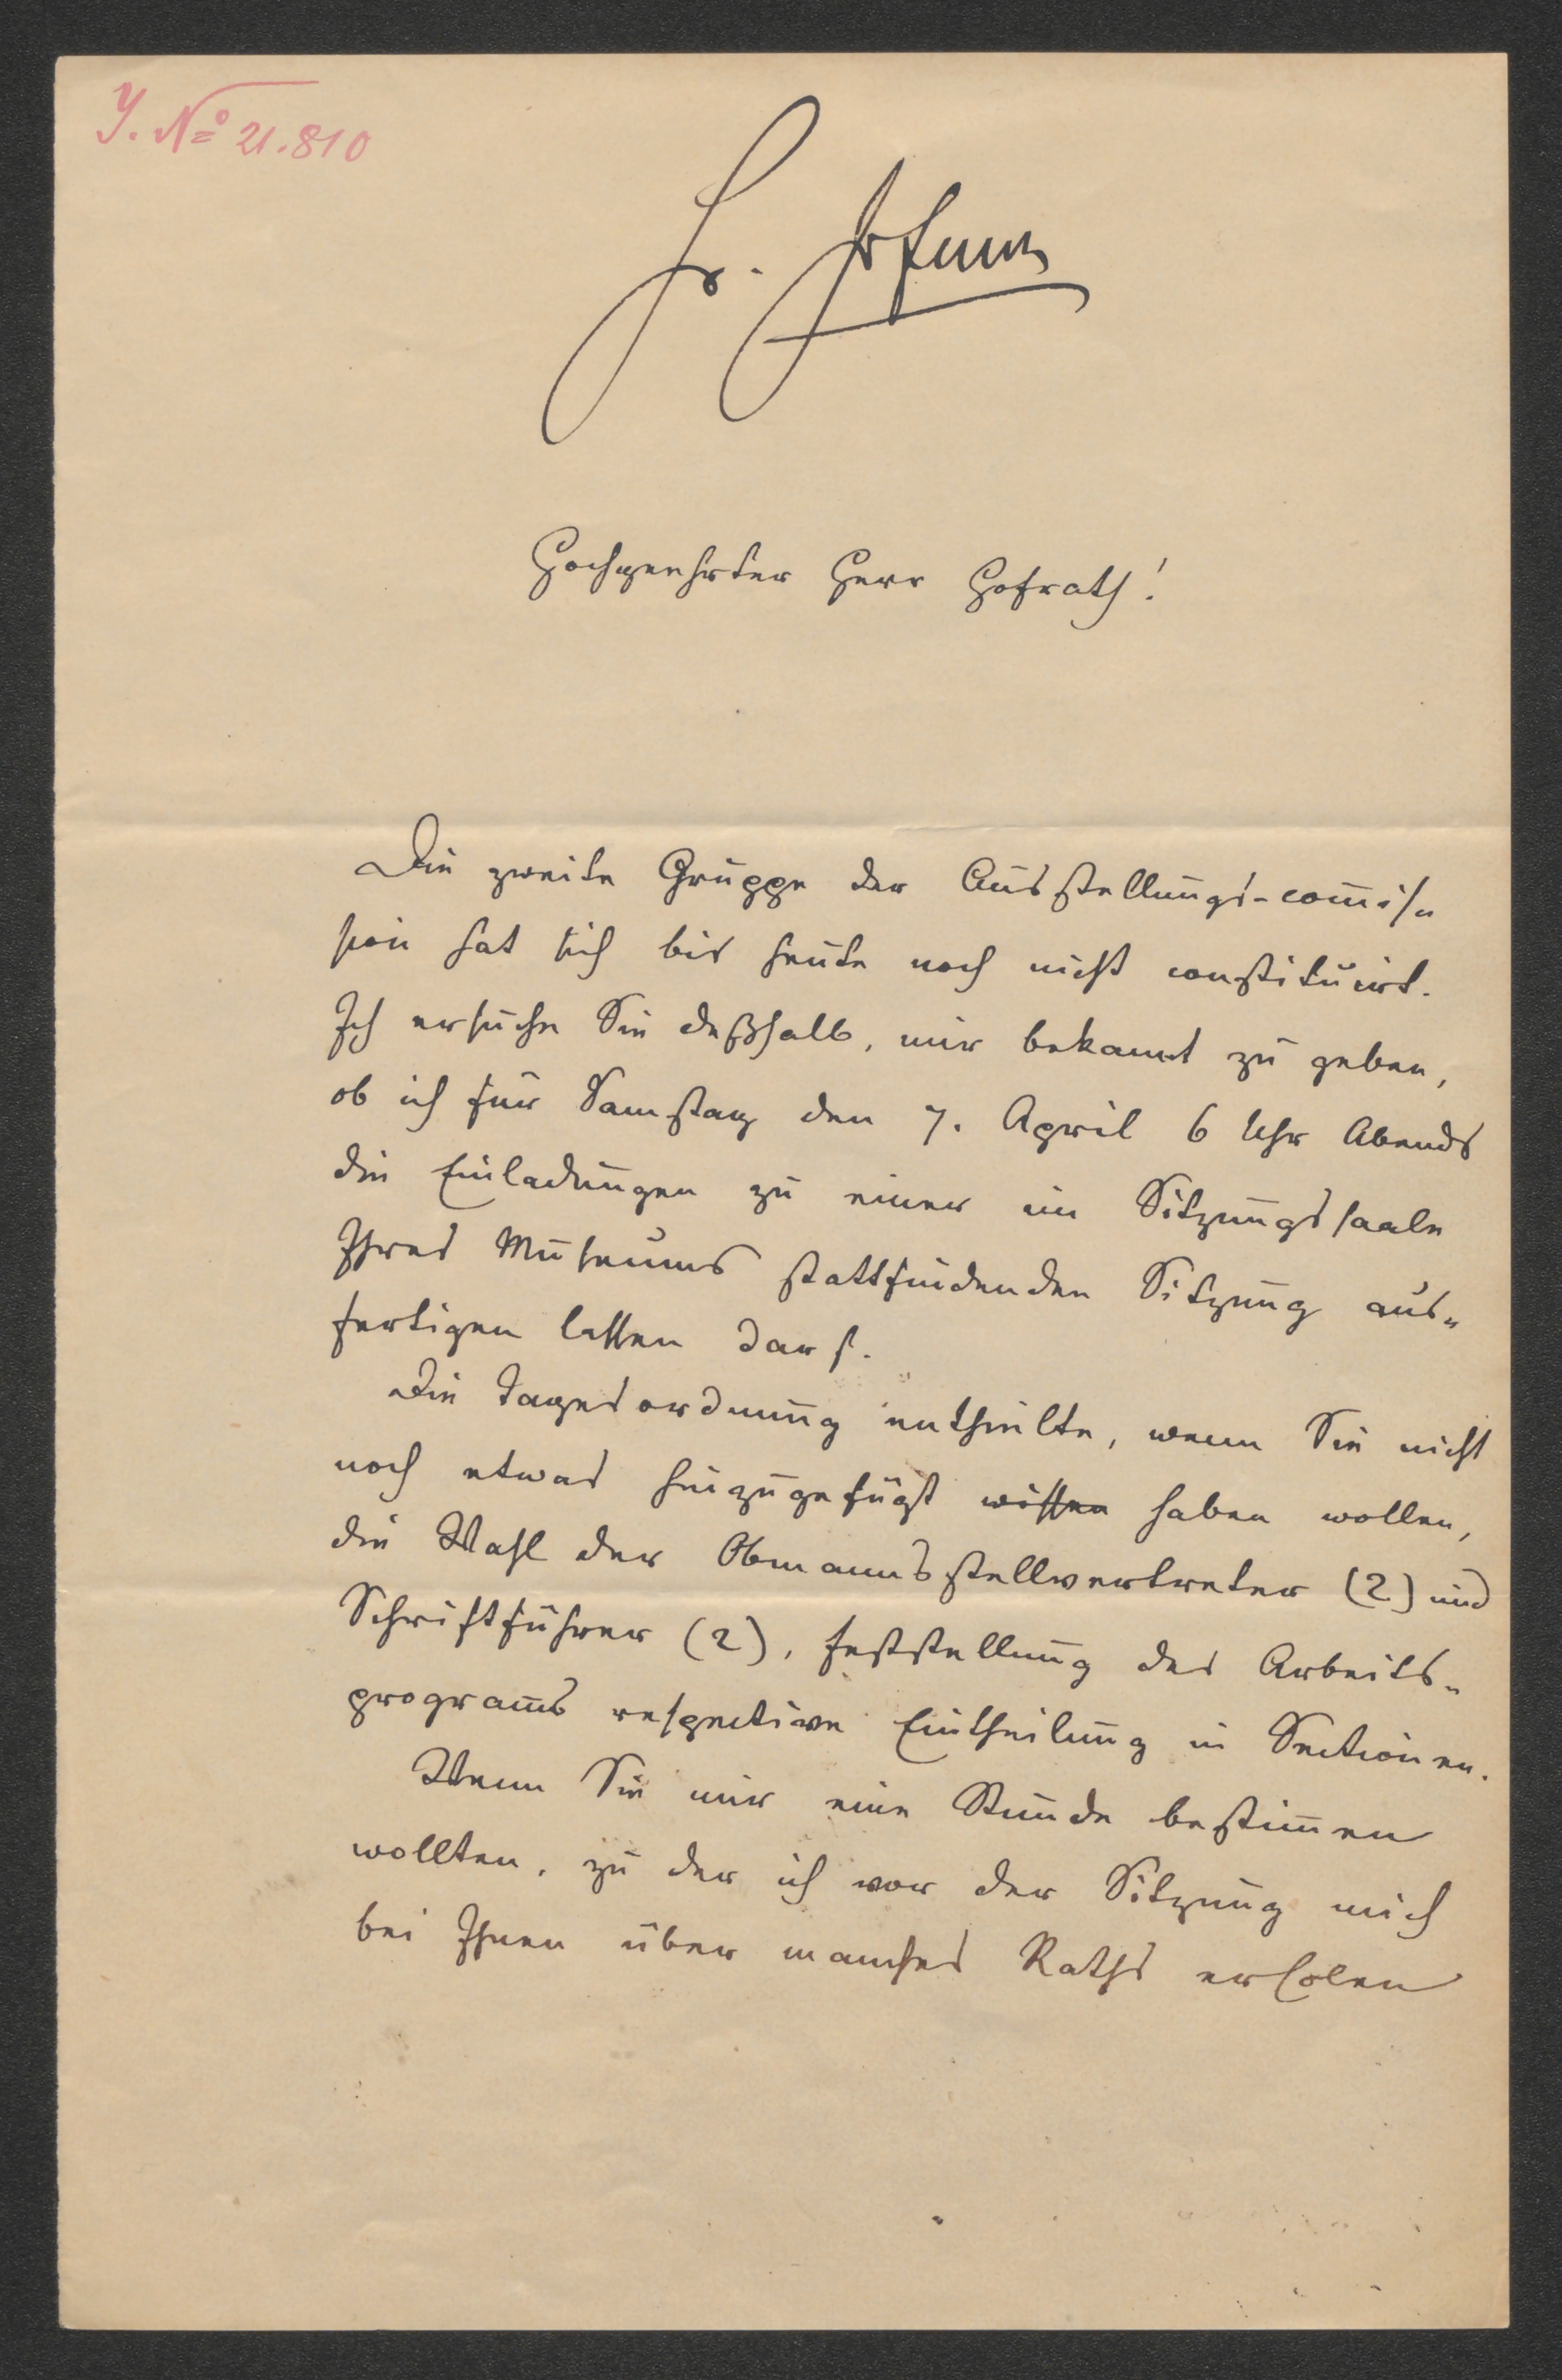 J. No 21.810
Hochgeehrter Herr Hofrath!
Die zweite Gruppe der Ausstellungs-com̅is„
sion hat sich bis heute noch nicht constituirt.
Ich ersuche Sie deßhalb, mir bekannt zu geben,
ob ich für Samstag den 7. April 6 Uhr Abends
die Einladungen zu einer im Sitzungssaale
Ihres Museums stattfindenden Sitzung aus„
fertigen lassen darf.
Die Tagesordnung enthielte, wenn Sie nicht
noch etwas hinzugefügt wissen haben wollen,
die Wahl der Obmannsstellvertreter (2) und
Schriftführer (2), Feststellung des Arbeits„
program̅s respective Eintheilung in Sectionen.
Wenn Sie mir eine Stunde bestim̅en
wollten, zu der ich vor der Sitzung mich
bei Ihnen über manches Raths erholen